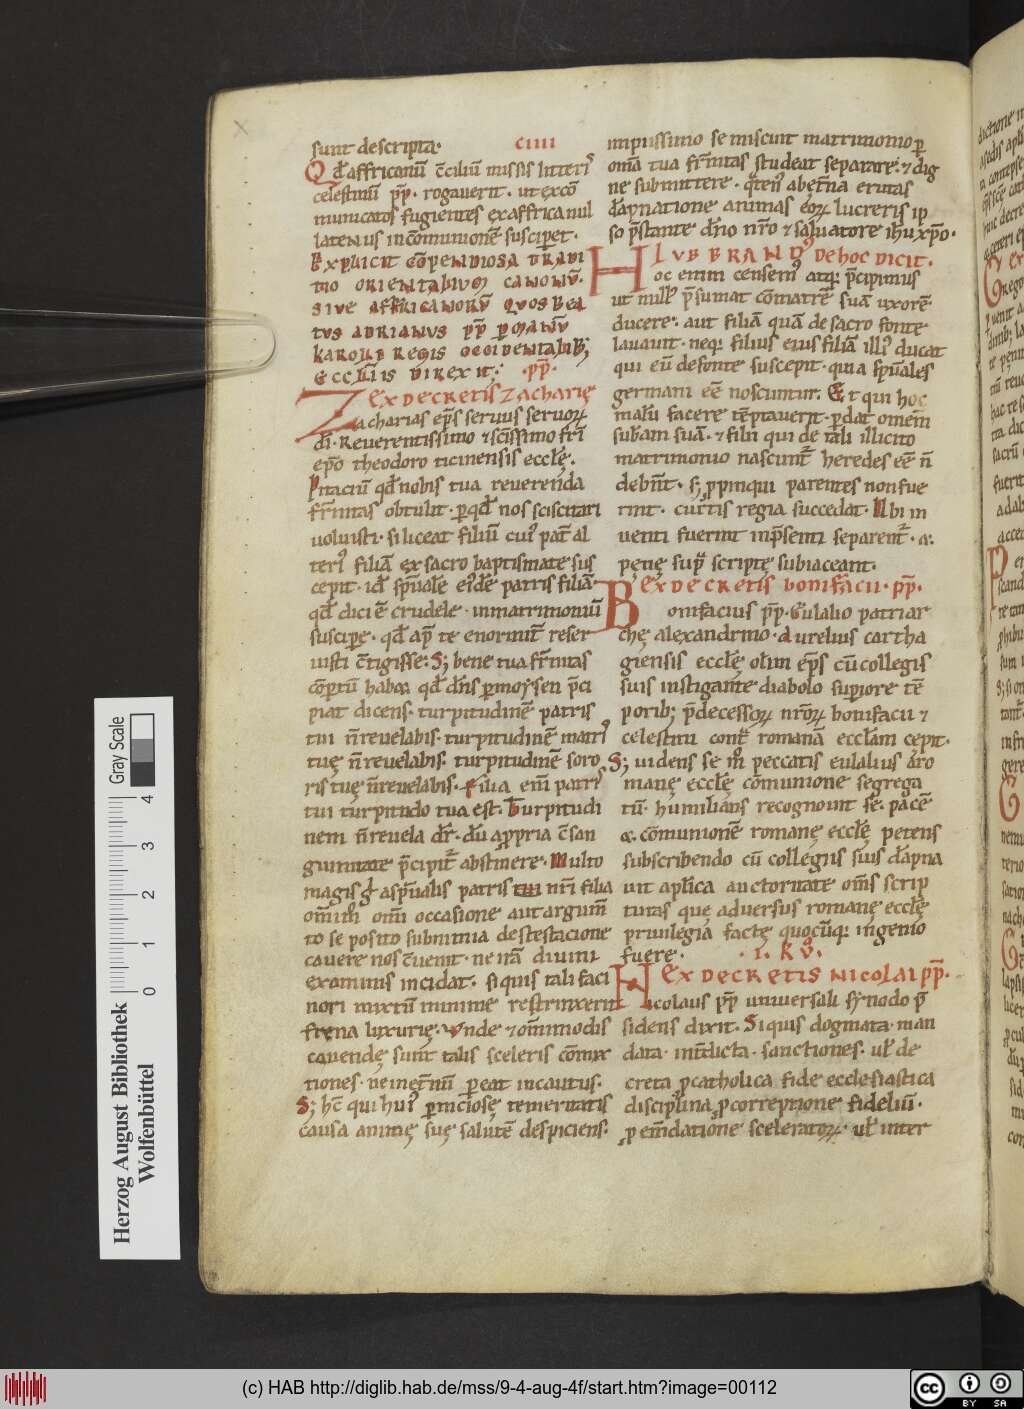 sunt descripta· CIIII
Qđ affricanū c̄ciliū missis litteris
celestinū pp̄· rogauerit· ut exco
municatos fugientes ex affrica nul
latenus in cōmunionē susciperet·
Explicit cōpendiosa tradi
tio orientalium canonū·
siue affricanorū quos bea
tus adrianus pp̄ romanus
karolo regis occidentalib;
direxit· pp̄·
Ex decretis Zacharię
Zacharias ep̄s seruus seruoꝝ
dī· Reuerentissimo ⁊ scīssimo frī
ep̄o theodoro ticinensis eccłę·
qđ nobis tua reuerenda
fr̄nitas obtulit· qđ nos sciscitari
uoluisti· si liceat filiū cui᾽ pat̄ al
teri᾽ filiā ex sacro baptismate sus
cepit· id sp̄uale eidē patris filiā
qđ dici ē crudele· in matrimoniū
suscipe· qđ ap̄ te enormit̄ refer
uisti c̄tigisse· S; bene tua fr̄nitas
cōpertū habet qđ dn̄s p moysen p̄ci
piat dicens· turpitudinē patris
tui n̄ reuelabis· turpitudinē matri᾽
tuę n̄ reuelabis· turpitudinē soro
ris tuę n̄ reuelabis· Filia em̄ patri᾽
tui turpitudo tua est· Turpitudi
nem n̄ reuela dr̄· dū a ppria c̄san
guinitate p̄cipit̄ abstinere· Multo
magis g a sp̄ualis patris nr̄i filia
om̄i occasione aut argum̄
to se posito
cauere nos c̄uenit· ne in īrā diuini
examinis incidat· si quis tali faci
nori mixtū minime restrinxerit
frena luxurię· Unde ⁊ om̄imodis
cauendę sunt talis sceleris cōmix
tiones· ne in et̄nū peat incautus·
S; hc̄ qui hui᾽ pniciosę temeritatis
causa animę suę salutē despiciens·
impiissimo se miscuit matrimonio ꝑ
om̄a tua fr̄nitas studeat separare· ⁊ dig
ne submittere· qten᾽ ab et̄na erutas
dāpnatione animas eoꝝ lucreris ip
so p̄stante dn̄o nr̄o ⁊ saluatore ihū xp̄o·
HILVBRAND᾽ de hoc dicit·
Hoc enim censem᾽ atq; p̄cipimus
ut null᾽ p̄sumat cōmatrē suā uxorē
ducere· aut filiā quā de sacro fonte
lauauit· neq; filius eius filiā illi᾽ ducat
qui eū de fonte suscepit· quia sp̄uales
germani eē noscuntur· Et qui hoc
malū facere tēptauerit· pdat omem
subam suā· ⁊ filii qui de tali illicito
matrimonio nascunt̄ heredes eē n̄
debn̄t· s; ppinqui parentes non fue
rint· curtis regia succedat· Ubi in
uenti fuerint in p̄senti separent̄· ⁊
penę sup scriptę subiaceant·
Ex decretis bonifacii· pp̄·
Bonifacius pp̄· Eulalio patriar
chę alexandrino· Aurelius cartha
giensis eccłę olim ep̄s cū collegis
suis instigante diabolo supiore tē
porib; p̄decessoꝝ nr̄oꝝ bonifacii ⁊
celestini cont̄ romanā eccłam cepit·
S; uidens se in peccatis eulalius a ro
manę eccłę cōmunione segrega
tū· humilians recognouit se· pacē
⁊ cōmunionē romanę eccłę petens
subscribendo cū collegiis suis dāpna
uit aplica auctoritate om̄s scrip
turas que aduersus romanę eccłę
priuilegia factę quocūq; ingenio
fuere·
Ex decretis Nicolai pp̄·
Nicolaus pp̄ uniuersali synodo p̄
sidens dixit· Siquis dogmata man
data· int̄dicta· sanctiones· uł de
creta p catholica fide ecclesiastica
disciplina p correptione fideliū·
p em̄datione sceleratoꝝ· uł inter
Gray Scale
0 1 2 3 4
Herzog August Bibliothek
Wolfenbüttel
(c) HAB http://diglib.hab.de/mss/9-4-aug-4f/start.htm?image=00112
cc BY SA